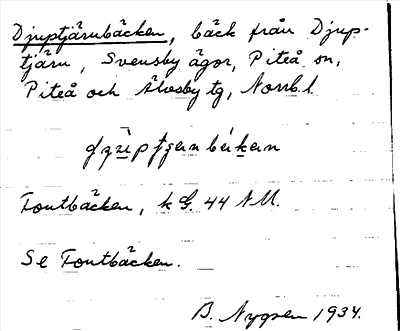 Djuptjärnbäcken, bäck från Djup-
tjärn, Svensby ägor, Piteå sn,
Piteå och Älvsby tg, Norrb. l.
Fontbäcken, k G. 44 NU.
Se Fontbäcken.
B. Nygren 1934.